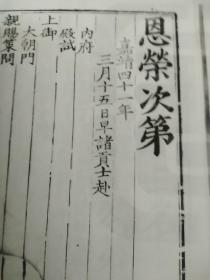 恩榮次第
嘉靖四十一年
三月十五日早諸貢士赴
內府
殿試
上御
大朝門
親賜策問